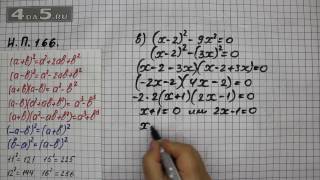 4DA5.RU
И.П. 166.
(a+b)²=a²+2ab+b²
(a-b)²=a²-2ab+b²
(a-b)(a+b)=a²-b²
(-a-b)²=(a+b)²
(b-a)²=(a-b)²
11²=121 15²=225
12²=144 16²=256
в) (x-2)²-9x²=0
(x-2)²-(3x)²=0
(x-2-3x)(x-2+3x)=0
(-2x-2)(4x-2)=0
-2·2(x+1)(2x-1)=0
x+1=0 или 2x-1=0
x